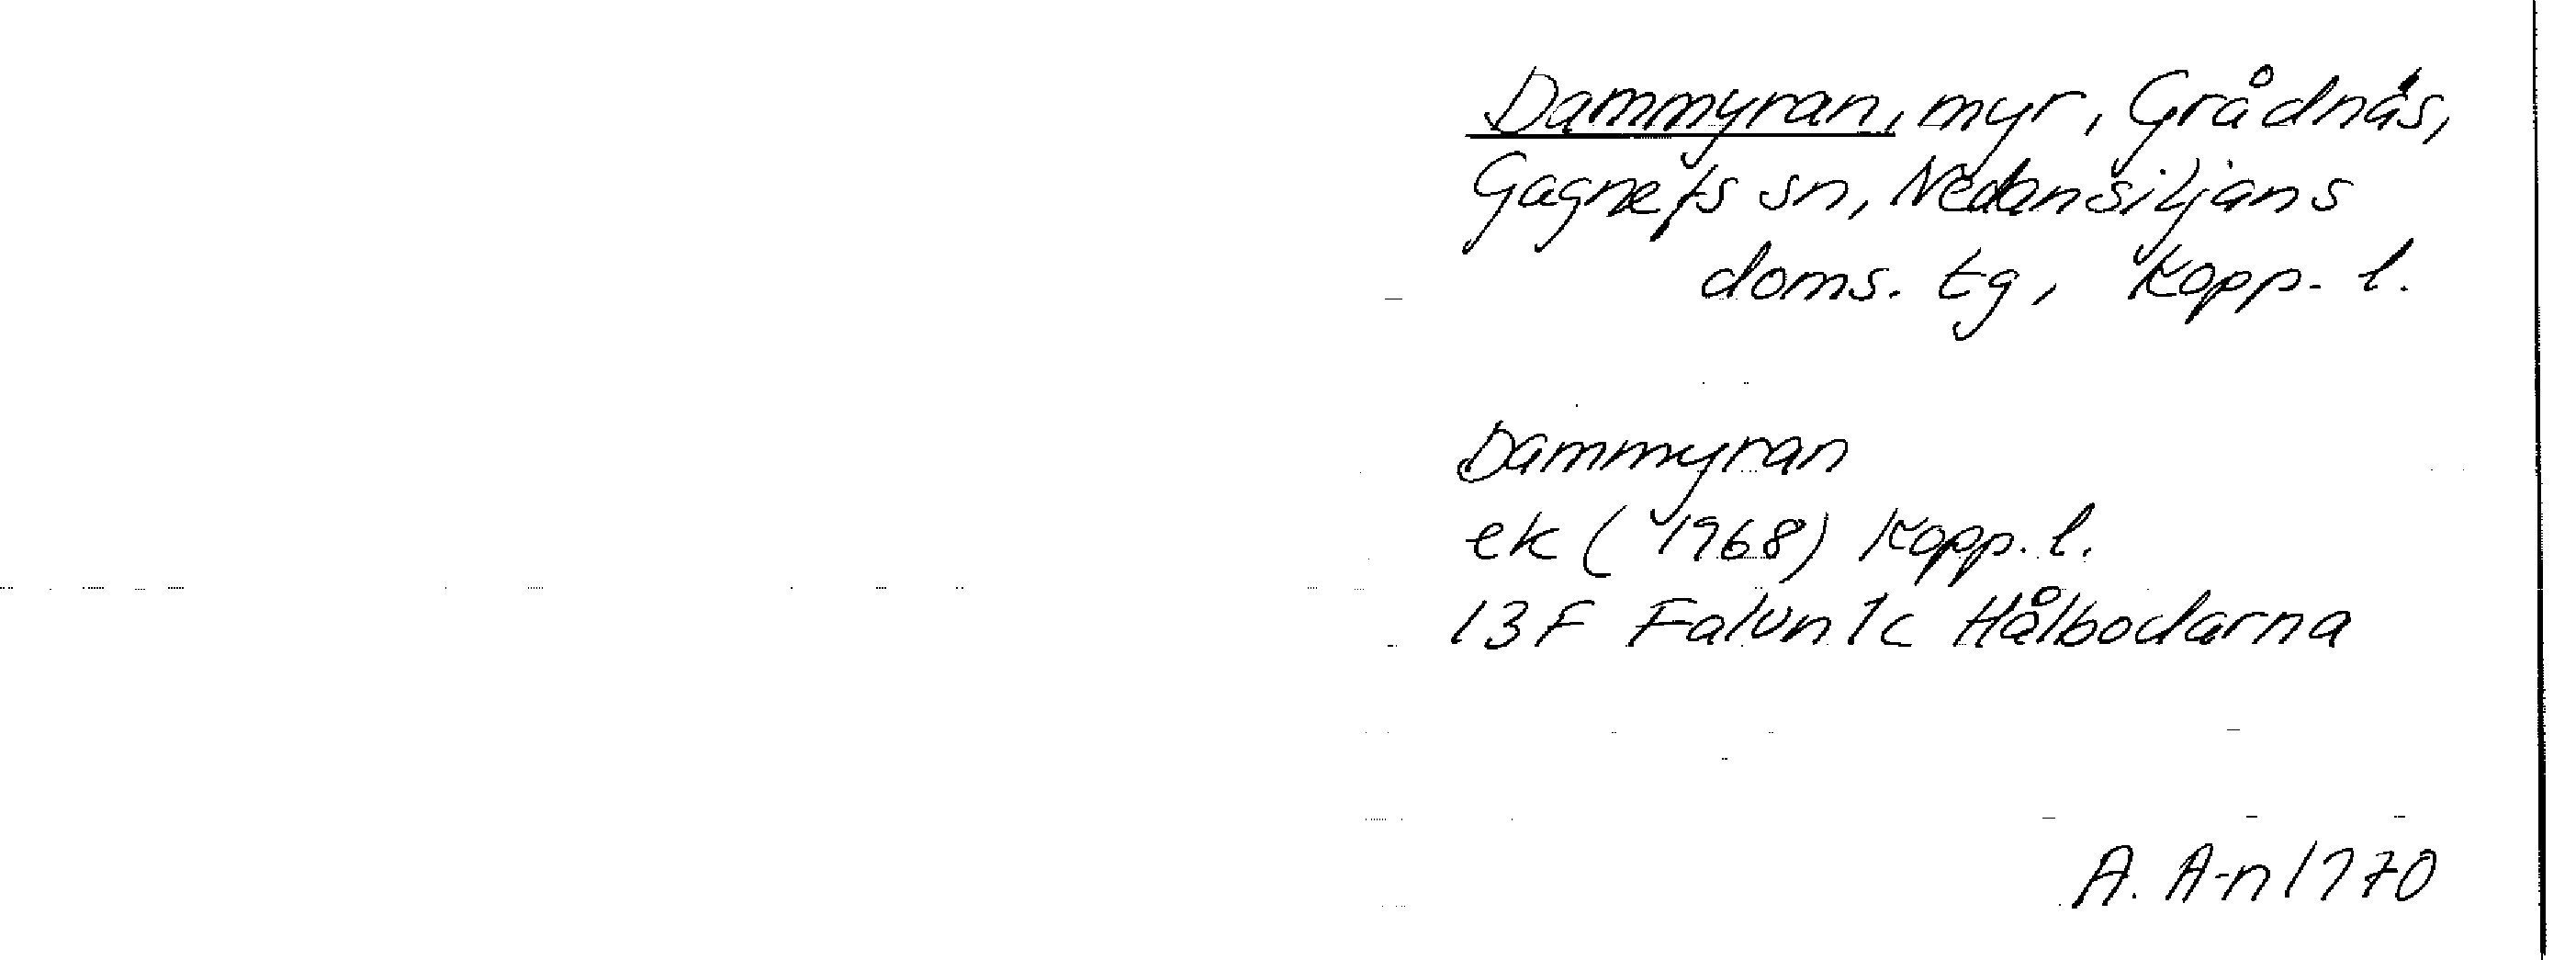 Dammyran, myr, Grådnäs,
Gagnefs sn, Nedansiljans
doms. tg, Kopp. l.
Dammyran
ek (1968) Kopp. l.
13F Falun 1c Hålbodarna
A. A-n 1970